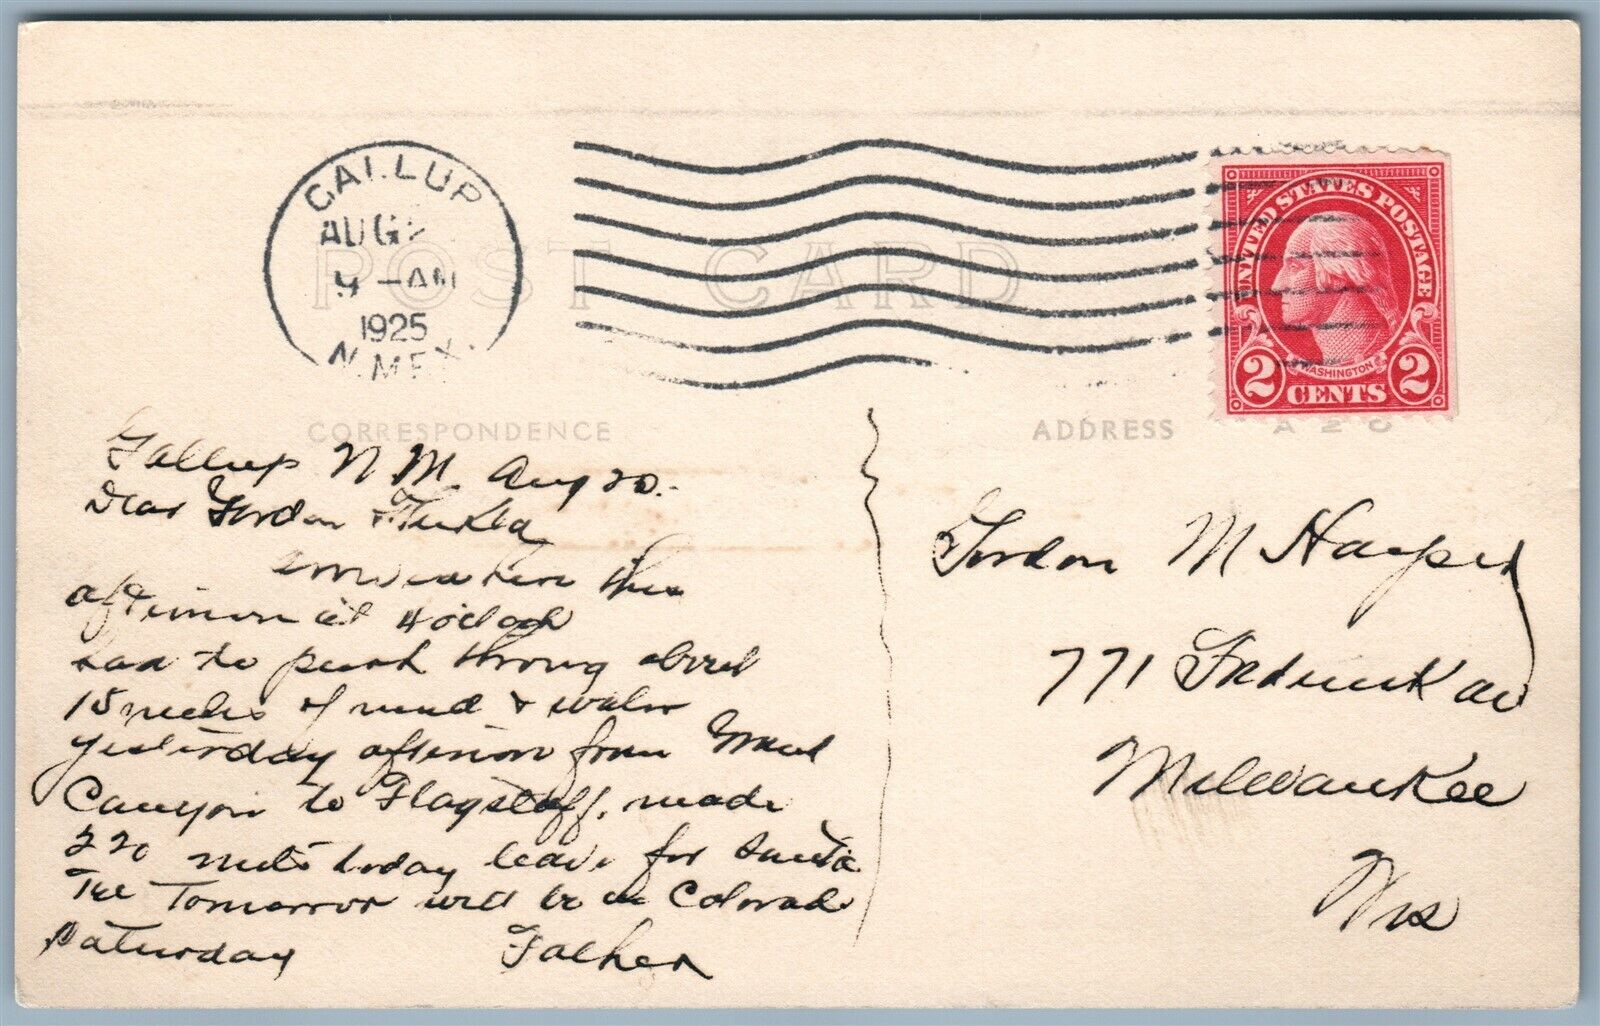 GALLUP
AUG 2
9 - AM
1925
N. MEX.
UNITED STATES POSTAGE
WASHINGTON
2 CENTS 2
POST CARD
CORRESPONDENCE
ADDRESS
Gallup N M. Aug 20.
Dear Gordon &
arrived here this
afternoon at 4 oclock
had to push through about
15 miles of mud & water
yesterday afternoon from Grand
Canyon to Flagstaff, made
220 miles today leave for Santa
Fee Tomorrow will be in Colorado
Saturday Father
Gordon M Harper
771 Frederick av
Milwaukee
Wis